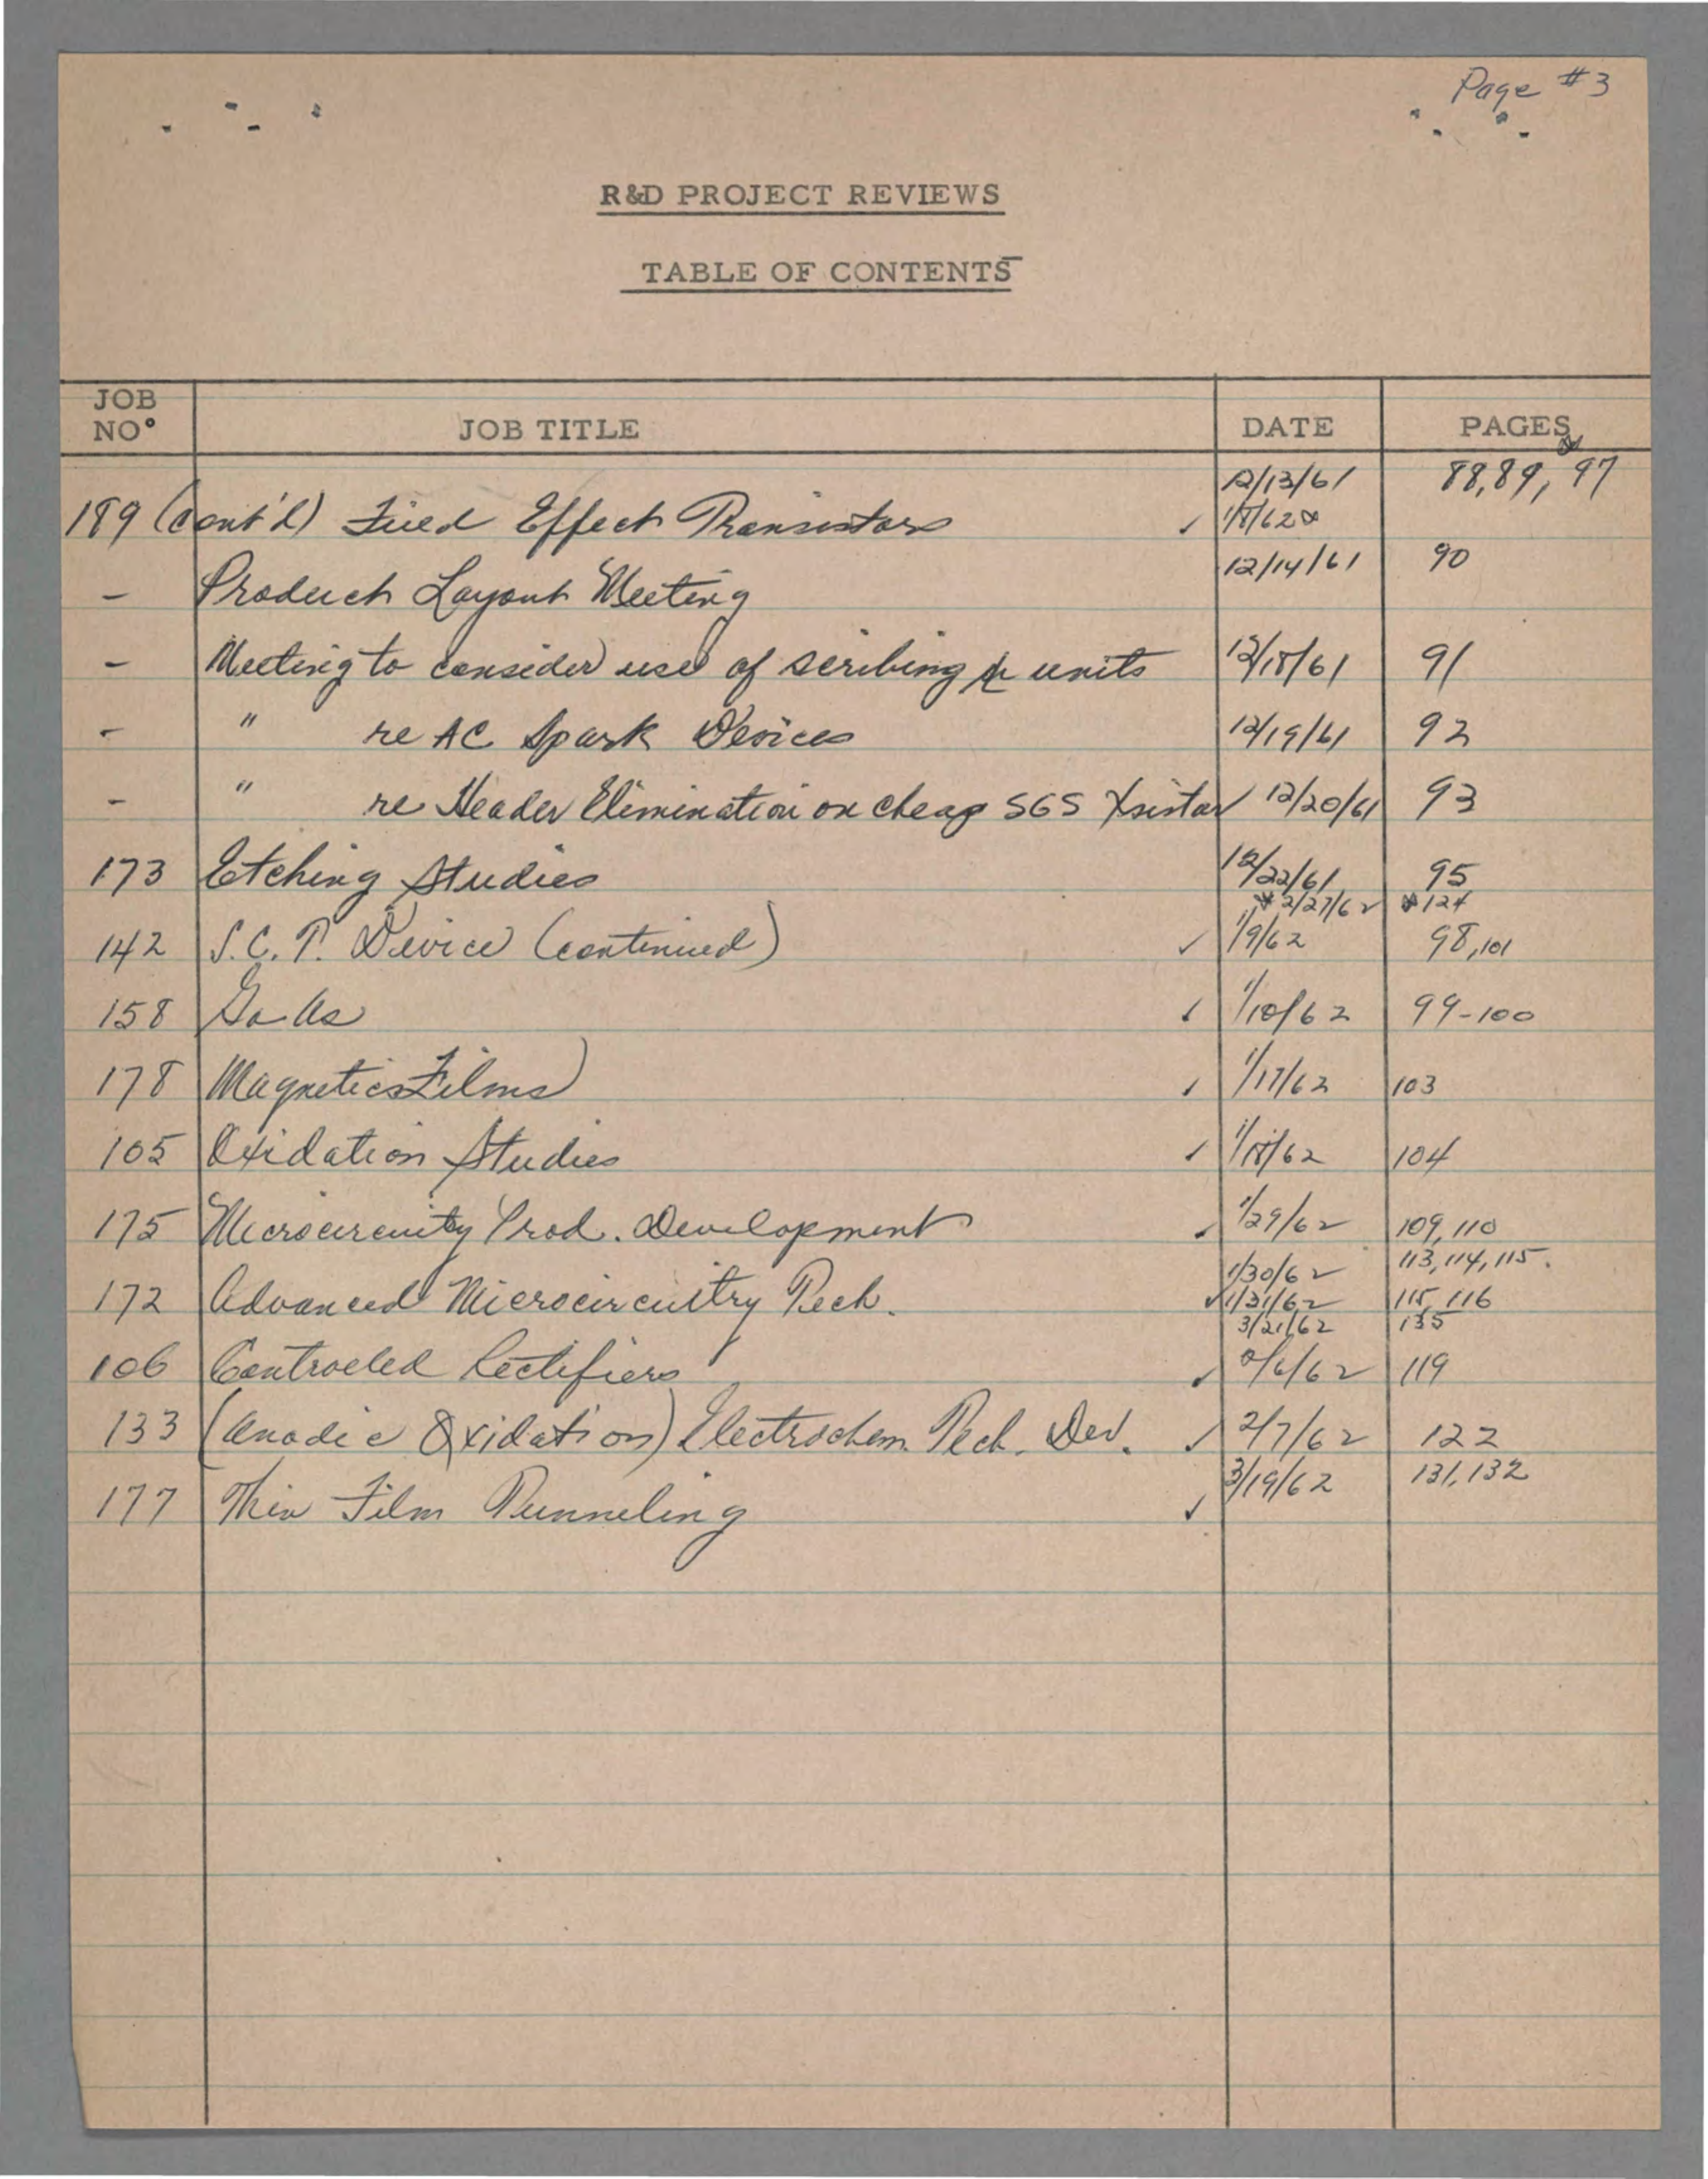 Page #3
R&D PROJECT REVIEWS
TABLE OF CONTENTS
JOB NO° JOB TITLE DATE PAGES
189 (cont'd) Field Effect Transistors ✓ 12/13/61 1/8/62 88, 89, & 97
- Product Layout Meeting 12/14/61 90
- Meeting to consider use of scribing units 12/18/61 91
- " re AC Spark Devices 12/19/61 92
- " re Header Elimination on cheap SGS Xsistor 12/20/61 93
173 Etching Studies 12/22/61 95
2/27/62 124
142 S.C.T. Device (continued) ✓ 1/9/62 98, 101
158 GaAs ✓ 1/10/62 99-100
178 Magnetics Films ✓ 1/17/62 103
105 Oxidation Studies ✓ 1/18/62 104
175 Microcircuitry Prod. Development ✓ 1/29/62 109, 110
1/30/62 113, 114, 115.
172 Advanced Microcircuitry Tech. ✓ 1/31/62 115, 116
3/21/62 135
106 Controled Rectifiers ✓ 2/6/62 119
133 (Anodic Oxidation) Electrochem. Tech. Dev. ✓ 2/7/62 122
177 Thin Film Tunneling ✓ 3/19/62 131, 132